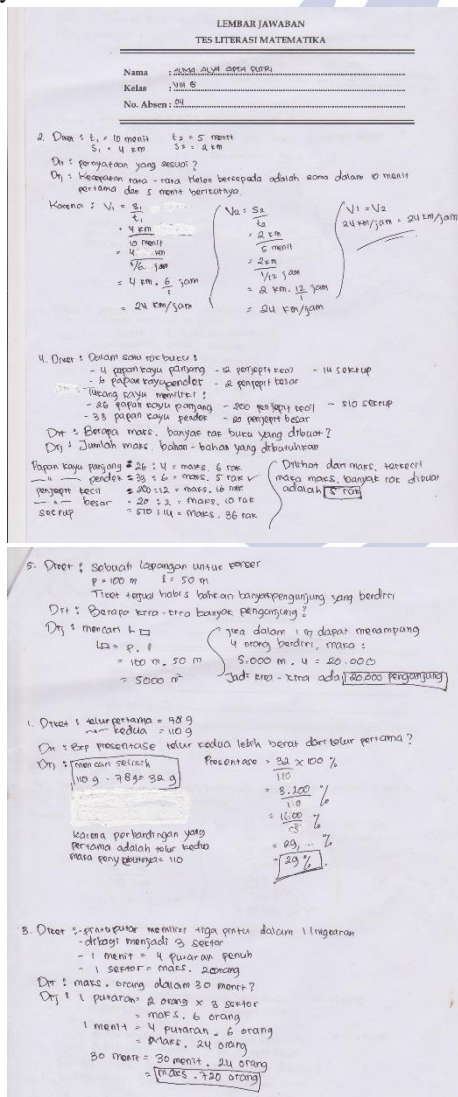 LEMBAR JAWABAN
TES LITERASI MATEMATIKA
Nama : ALMA ALYA PUTRI
Kelas : VIII
No. Absen : 04
2. Diket : t₁ = 10 menit t₂ = 5 menit
S₁ = 4 km S₂ = 2 km
Dit : pernyataan yang sesuai ?
Dij : Kecepatan rata - rata Helen bersepeda adalah sama dalam 10 menit
pertama dan 5 menit berikutnya.
Karena : V₁ = S₁/t₁
= 4 km / 10 menit
= 4 km / 1/6 jam
= 4 km . 6/1 jam
= 24 km/jam
V₂ = S₂/t₂
= 2 km / 5 menit
= 2 km / 1/12 jam
= 2 km . 12/1 jam
= 24 km/jam
V1 = V2
24 km/jam = 24 km/jam
4. Diket : Dalam satu rak buku :
- 4 papan kayu panjang - 12 penjepit kecil - 14 sekrup
- 6 papan kayu pendek - 2 penjepit besar
Tukang kayu memiliki :
- 26 papan kayu panjang - 200 penjepit kecil - 510 sekrup
- 33 papan kayu pendek - 20 penjepit besar
Dit : Berapa maks. banyak rak buku yang dibuat ?
Dij : Jumlah maks. bahan - bahan yang dibutuhkan
Papan kayu panjang = 26 : 4 = maks. 6 rak
— " — pendek = 33 : 6 = maks. 5 rak ✓
penjepit kecil = 200 : 12 = maks. 16 rak
— " — besar = 20 : 2 = maks. 10 rak
secrup = 510 : 14 = maks. 36 rak
Dilihat dari maks. terkecil
maka maks. banyak rak dibuat
adalah 5 rak
5. Diket : Sebuah lapangan untuk konser
P = 100 m l = 50 m
Tiket terjual habis bahkan banyak pengunjung yang berdiri
Dit : Berapa kira - kira banyak pengunjung ?
Dij : mencari L □
L□ = P . l
= 100 m . 50 m
= 5000 m²
jika dalam 1 m dapat menampung
4 orang berdiri, maka :
5.000 m . 4 = 20.000
Jadi kira - kira ada 20.000 pengunjung
1. Diket : telur pertama = 78 g
kedua = 110 g
Dit : Brp presentase telur kedua lebih berat dari telur pertama ?
Dij : mencari selisih
110 g - 78 g = 32 g
Karena perbandingan yang
pertama adalah telur kedua
maka penyebutnya = 110
Presentase = 32/110 x 100 %
= 3.200/110 %
%
= 29, ... %
= 29 %
3. Diket : - pintu putar memiliki tiga pintu dalam 1 lingkaran
- dibagi menjadi 3 sektor
- 1 menit = 4 putaran penuh
- 1 sektor = maks. 2 orang
Dit : maks. orang dalam 30 menit ?
Dij : 1 putaran = 2 orang x 3 sektor
= maks. 6 orang
1 menit = 4 putaran . 6 orang
= Maks. 24 orang
30 menit = 30 menit . 24 orang
= maks. 720 orang